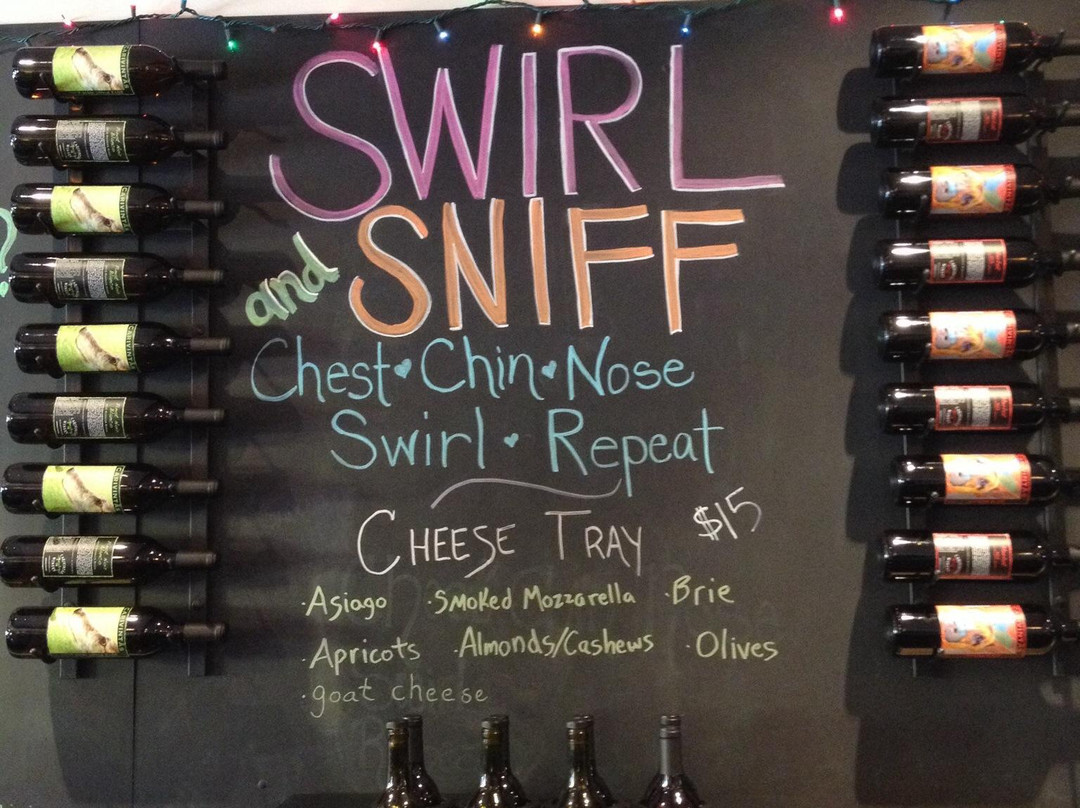 SWIRL
and SNIFF
Chest • Chin • Nose
Swirl • Repeat
CHEESE TRAY $15
· Asiago · Smoked Mozzarella · Brie
· Apricots · Almonds/Cashews · Olives
· goat cheese
?